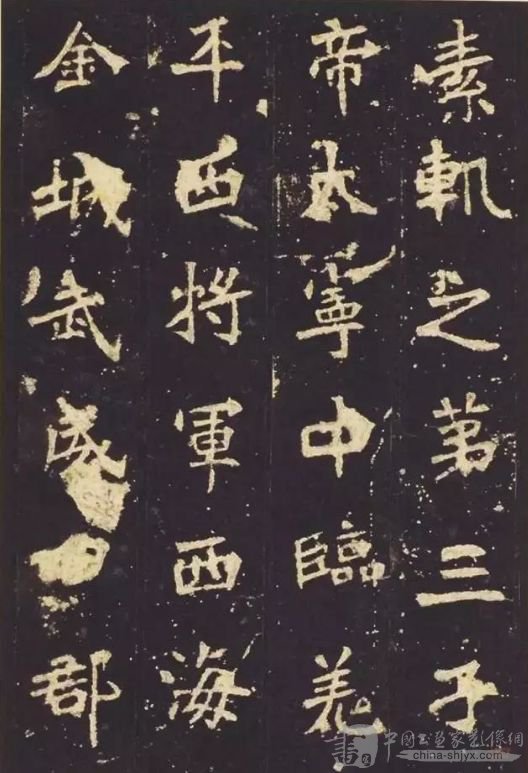 素軌之第三子
帝太寧中臨羌
平西將軍西海
金城武威郡
中國书画家影像網
china-shjyx.com